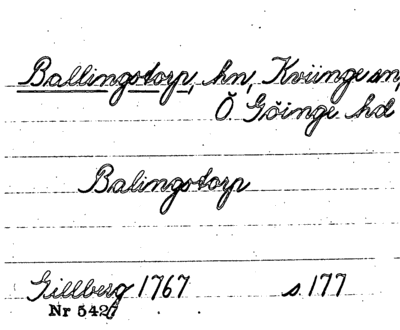 Ballingstorp, hn, Kviinge sn,
Ö. Göinge hd
Balingstorp
Gillberg 1767 s. 177
Nr 5427